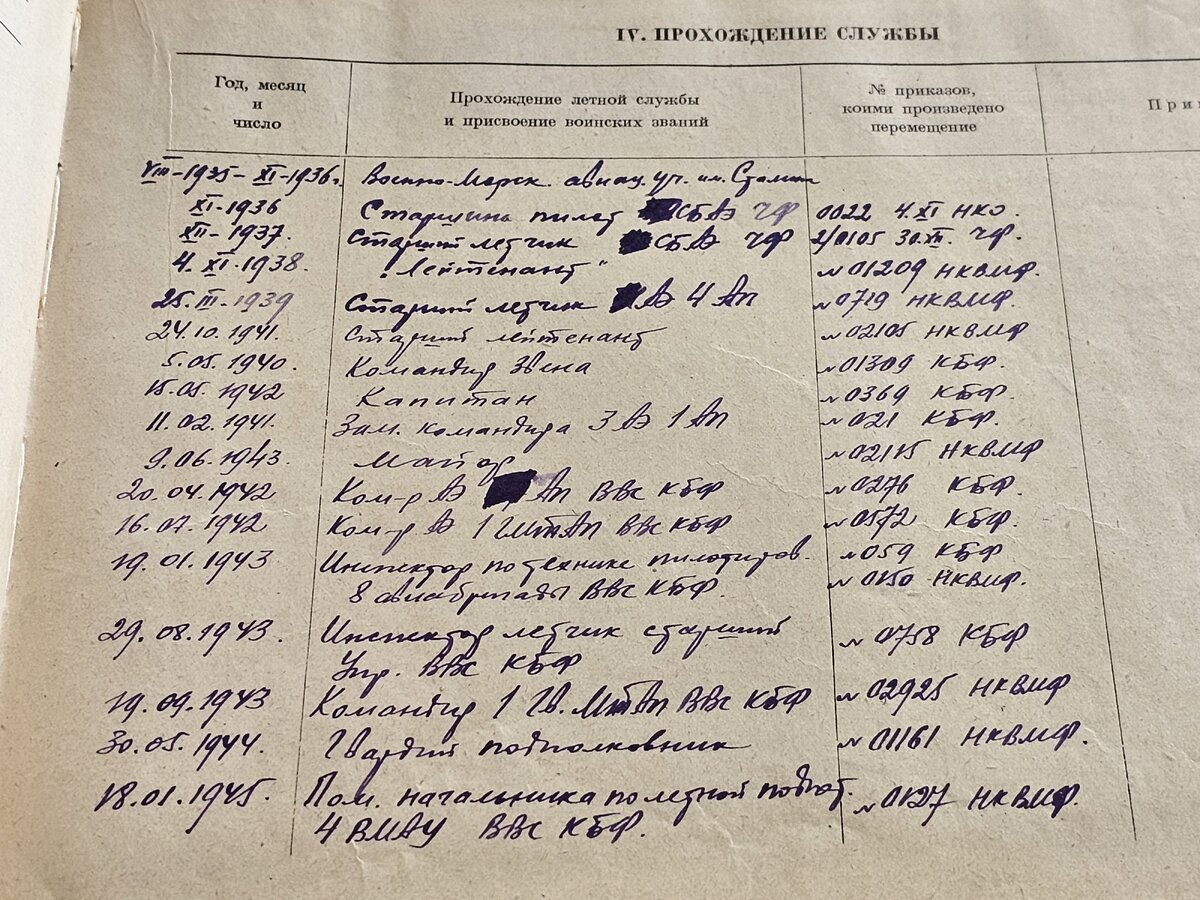 IV. ПРОХОЖДЕНИЕ СЛУЖБЫ
Год, месяц
и
число
Прохождение летной службы
и присвоение воинских званий
№ приказов,
коими произведено
перемещение
При
VIII-1935 - XI-1936г. Военно-Морск. авиац. уч. им. Сталина
XI-1936 Старшина пилот СБАЭ ЧФ 0022 4.XI НКО.
XII-1937. Старший летчик СБАЭ ЧФ 2/0105 30.XII. ЧФ.
4. XI.1938. "Лейтенант" №01209 НКВМФ.
25. III-1939 Старший летчик АЭ 4 АП №0719 НКВМФ.
24.10.1941. Старший лейтенант №02105 НКВМФ
5.05.1940. Командир звена №01309 КБФ.
15.05.1942 Капитан №0369 КБФ.
11.02.1941. Зам. командира 3 АЭ 1 АП №021 КБФ.
9.06.1943. Майор №02115 НКВМФ
20.04.1942 Ком-р АЭ АП ВВС КБФ №0276 КБФ.
16.07.1942 Ком-р АЭ 1 ГМТАП ВВС КБФ №0572 КБФ.
19.01.1943 Инспектор по технике пилотиров. №059 КБФ
8 авиабригады ВВС КБФ. №0150 НКВМФ.
29.08.1943. Инспектор летчик старший №0758 КБФ
Упр. ВВС КБФ
19.09.1943 Командир 1 Гв. МТАП ВВС КБФ №02925 НКВМФ
30.05.1944. Гвардии подполковник №01161 НКВМФ.
18.01.1945. Пом. начальника по летной подгот. №0127 НКВМФ.
4 ВМАУ ВВС КБФ.